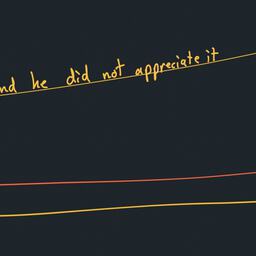 nd he did not appreciate it